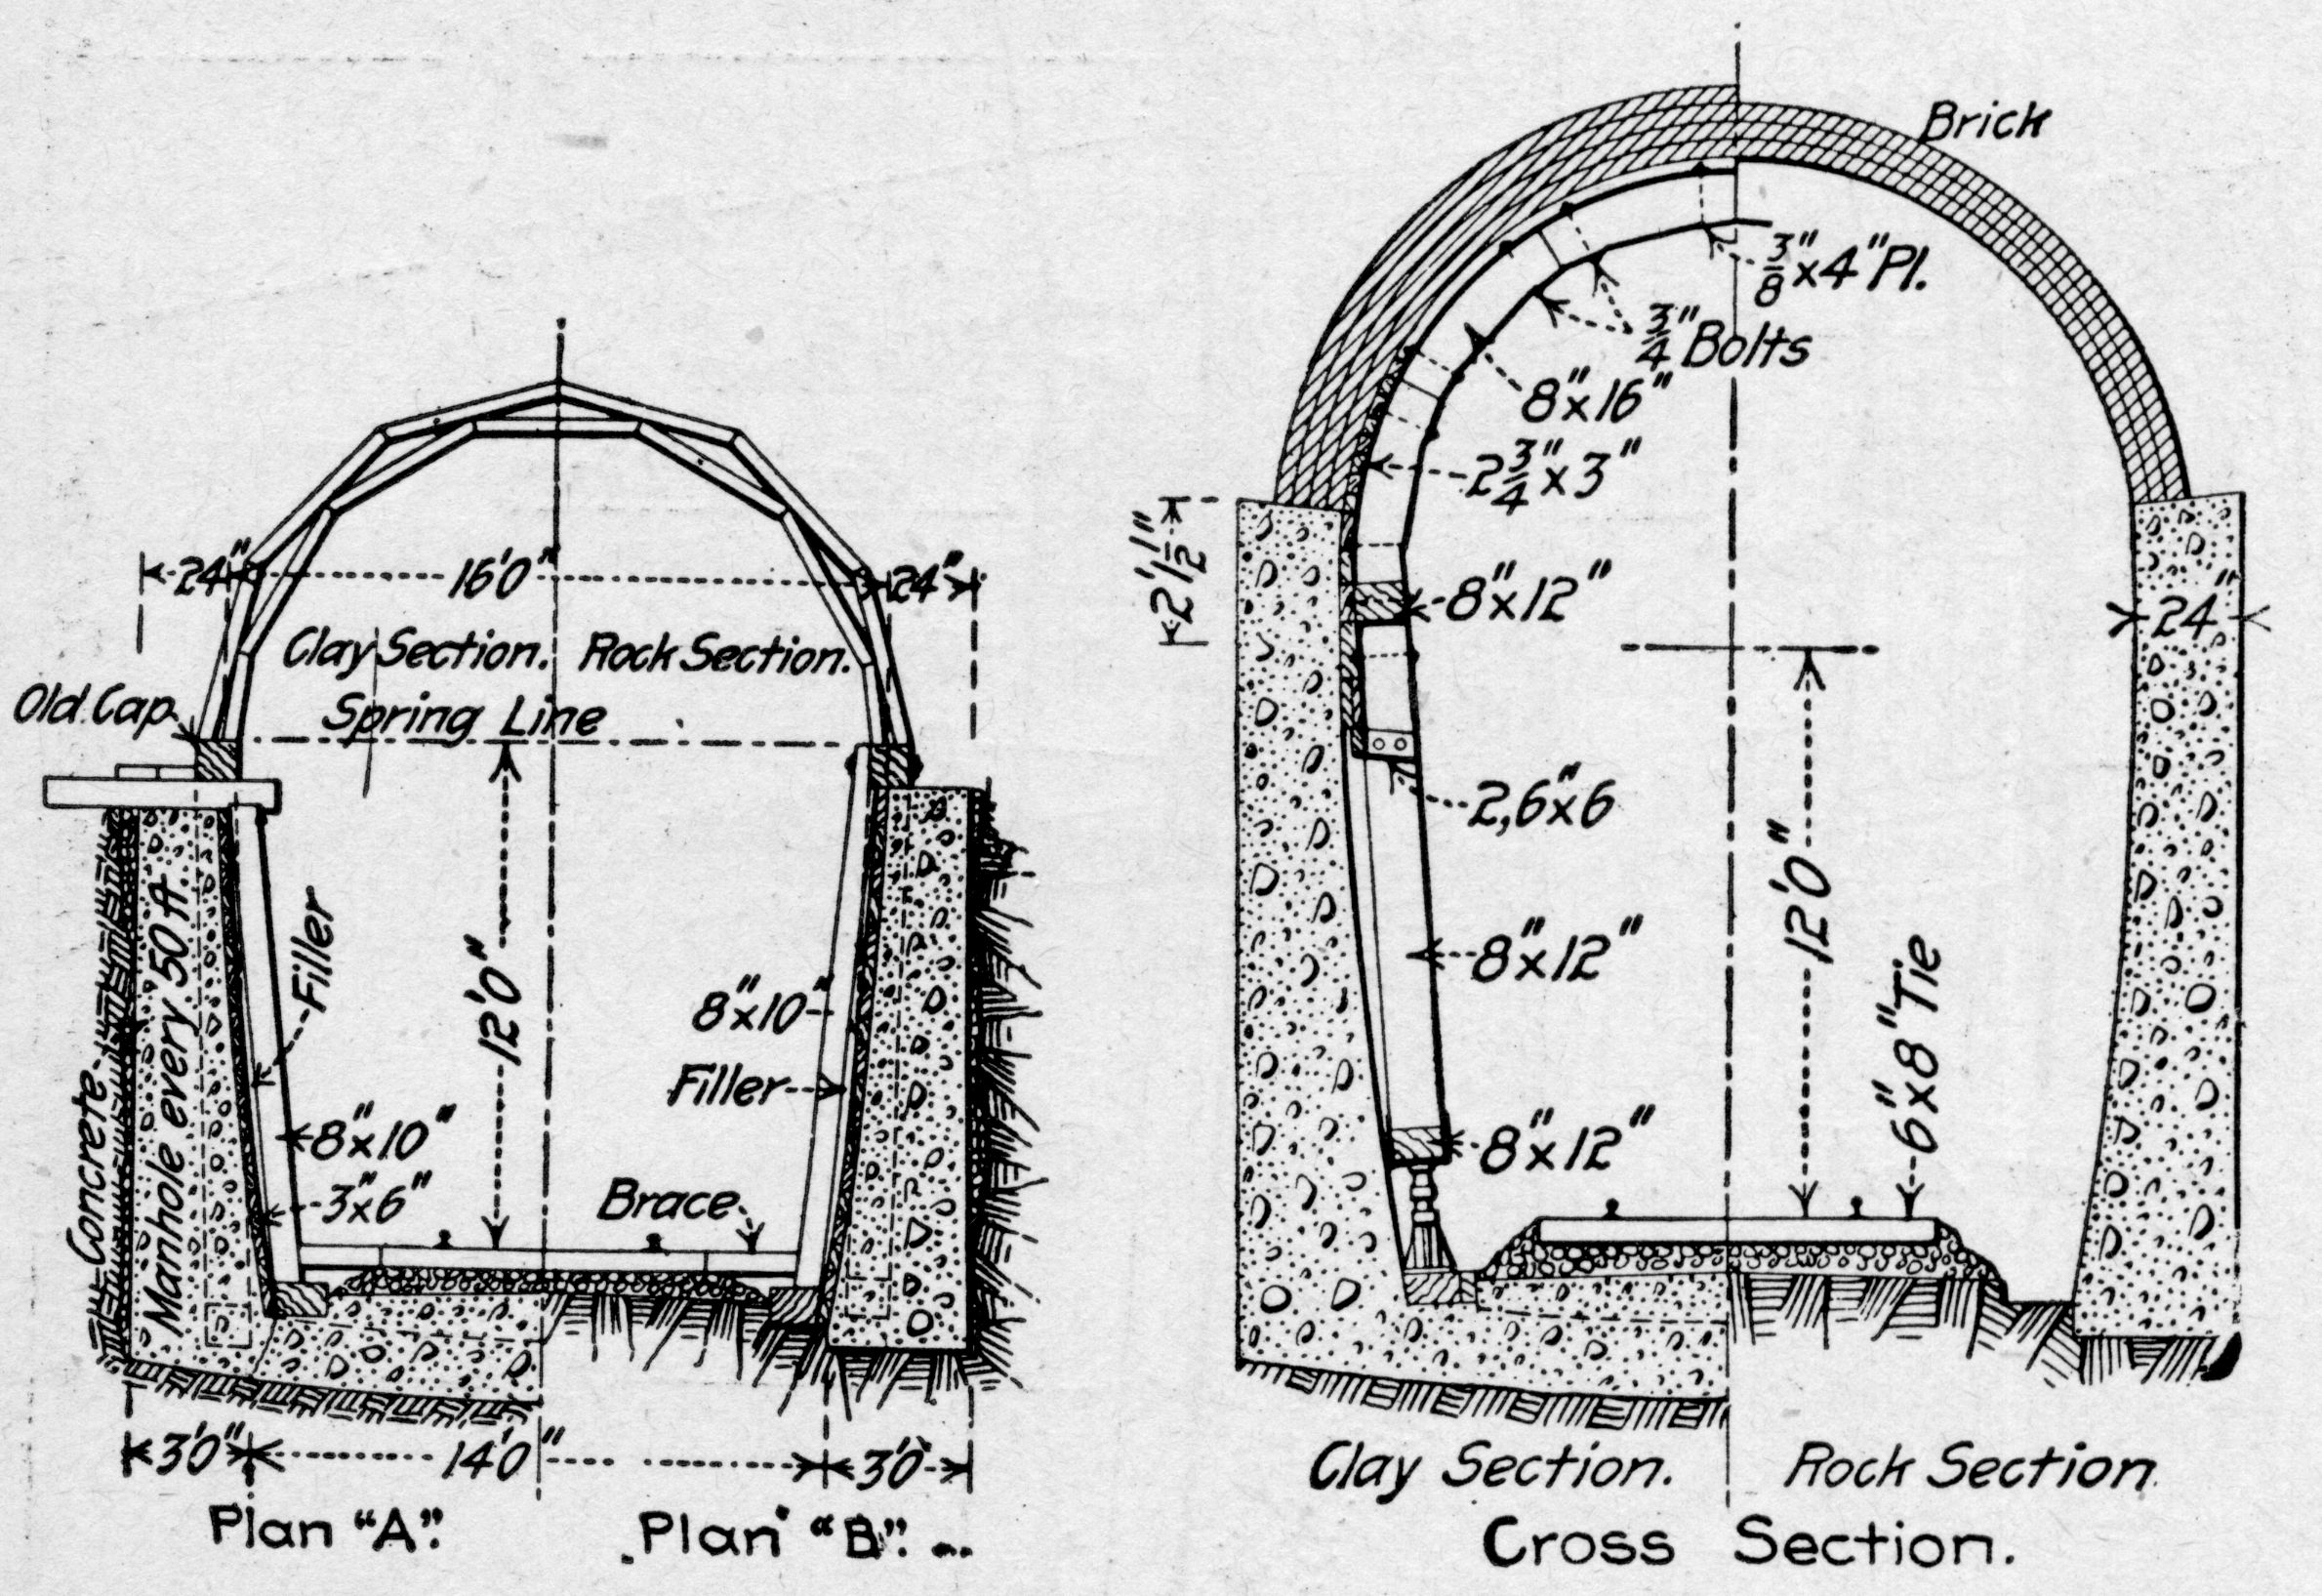 24"
16'0"
24"
Clay Section.
Rock Section.
Old Cap
Spring Line
Concrete
Manhole every 50 ft.
Filler
12'0"
8"x10"
Filler
8"x10"
3"x6"
Brace
3'0"
14'0"
3'0"
Plan "A".
Plan "B".
Brick
3/8"x4"Pl.
3/4" Bolts
8"x16"
2 3/4"x3"
2'1 1/2"
8"x12"
24"
2,6"x6
8"x12"
12'0"
6"x8" Tie
8"x12"
Clay Section.
Rock Section
Cross Section.